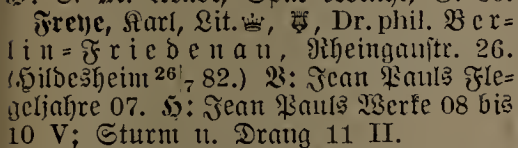 Freye, Karl, Lit. Dr. phil. Ber-
lin-Friedenau, Rheingaustr. 26.
(Hildesheim 26/7 82.) V: Jean Pauls Fle-
geljahre 07. H: Jean Pauls Werke 08 bis
10 V; Sturm u. Drang 11 II.